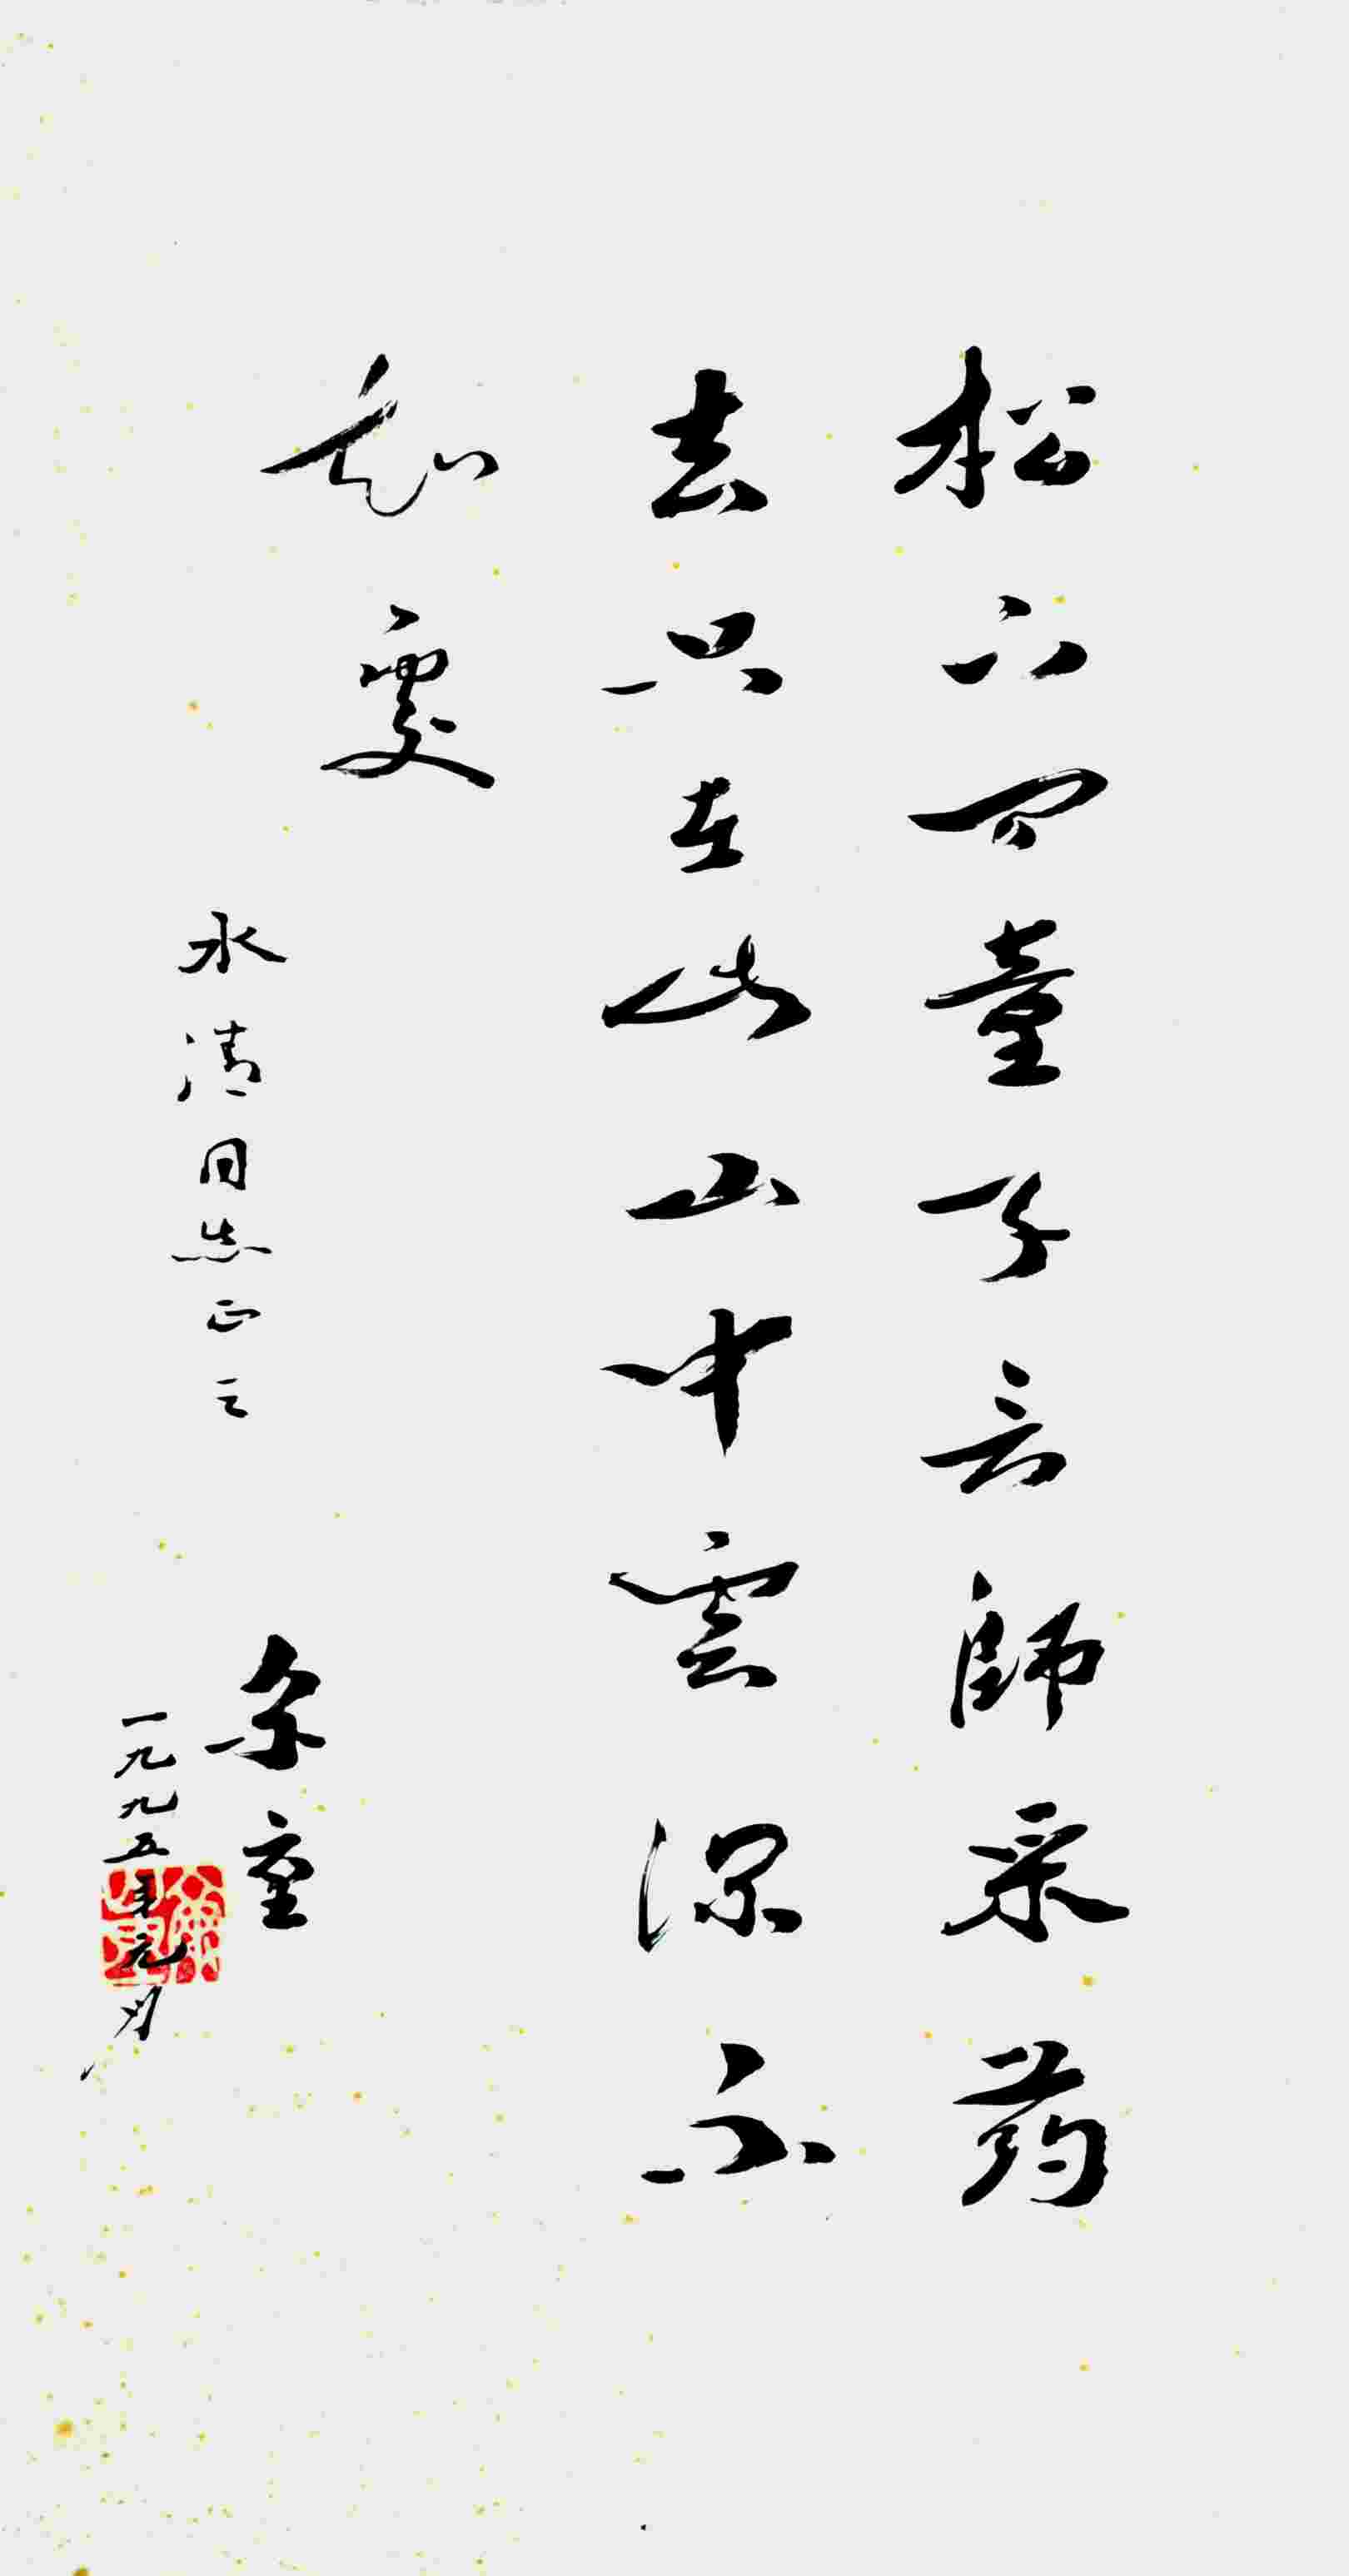 松下问童子言師采药
去只在此山中雲深不
知處
永清同志正之
尔重
一九九五年元月